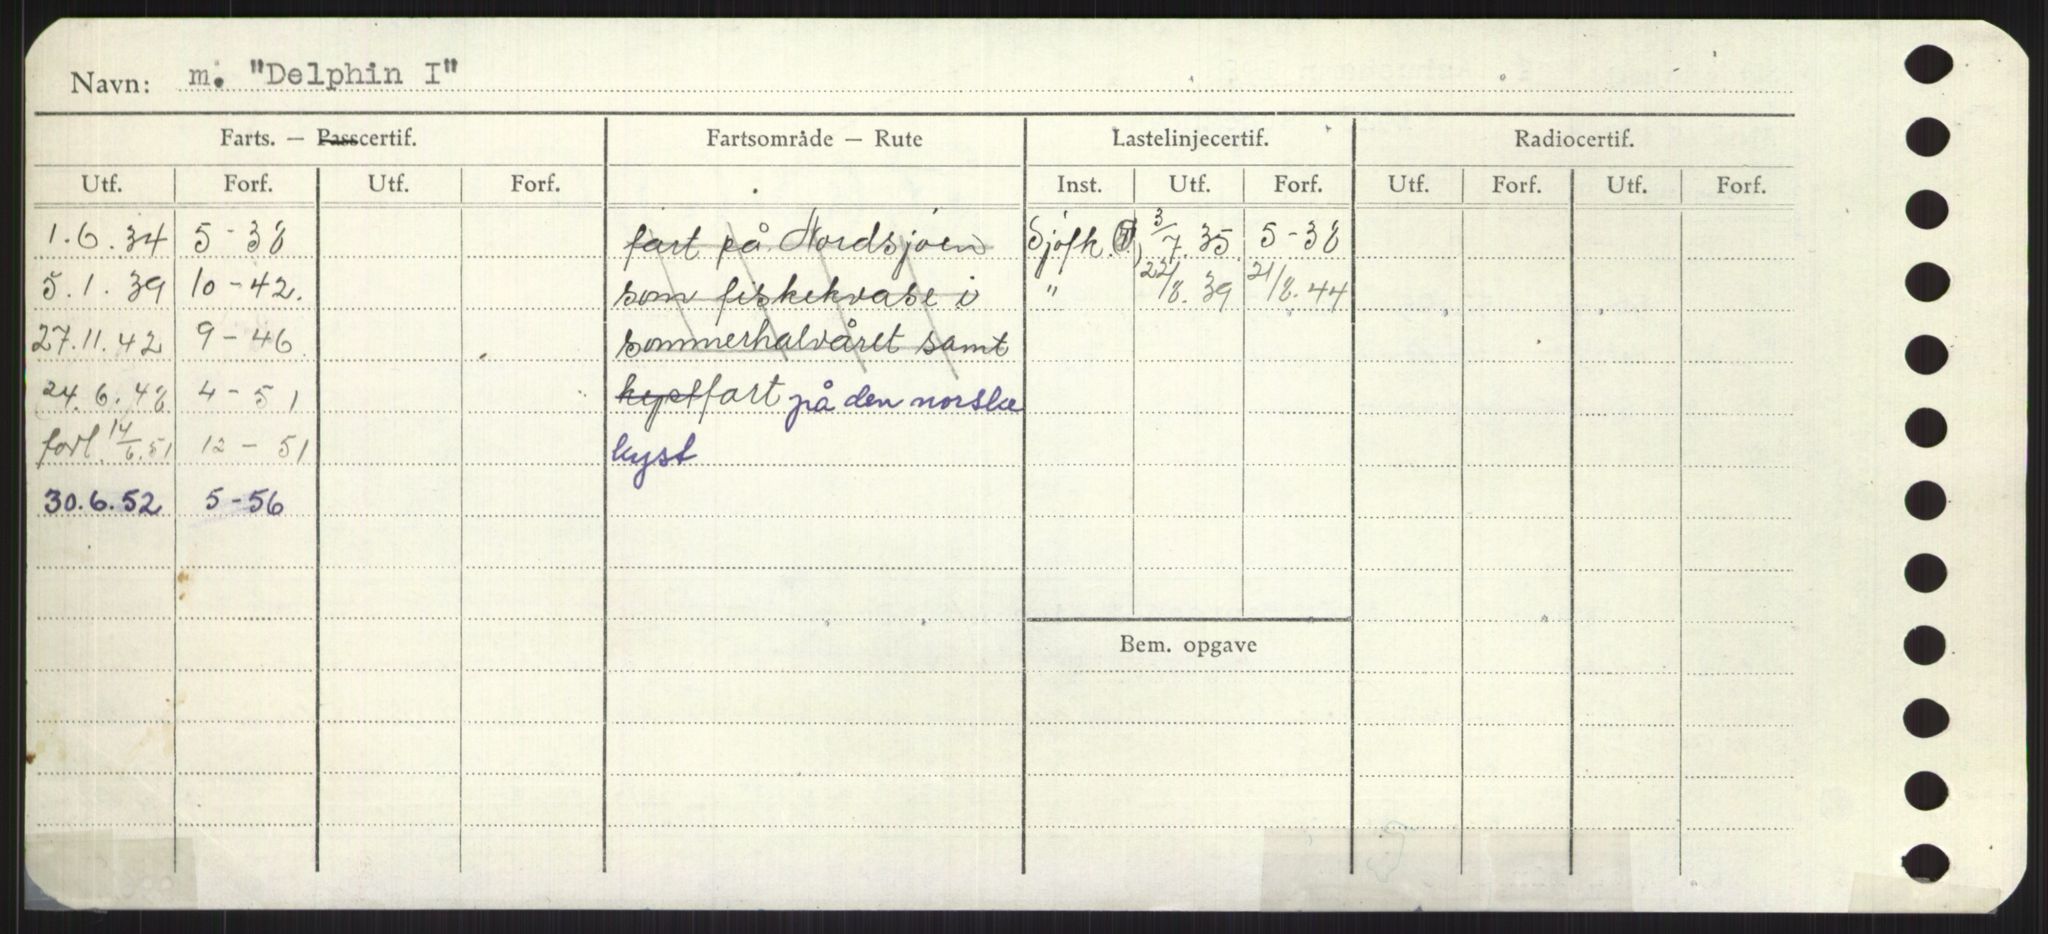 Navn: m. "Delphin I"
Farts. — Passcertif. Fartsområde — Rute Lastelinjecertif. Radiocertif.
Utf. Forf. Utf. Forf. Inst. Utf. Forf. Utf. Forf. Utf. Forf.
1.6.34 5-38 fart på Nordsjøen Sjøfk. 3/7.35 5-38
5.1.39 10-42. som fiskekvase i " 22/8.39 21/8.44
27.11.42 9-46 sommerhalvåret samt
24.6.48 4-51 kystfart på den norske
forl. 14/6.51 12-51 kyst
30.6.52 5-56
Bem. opgave